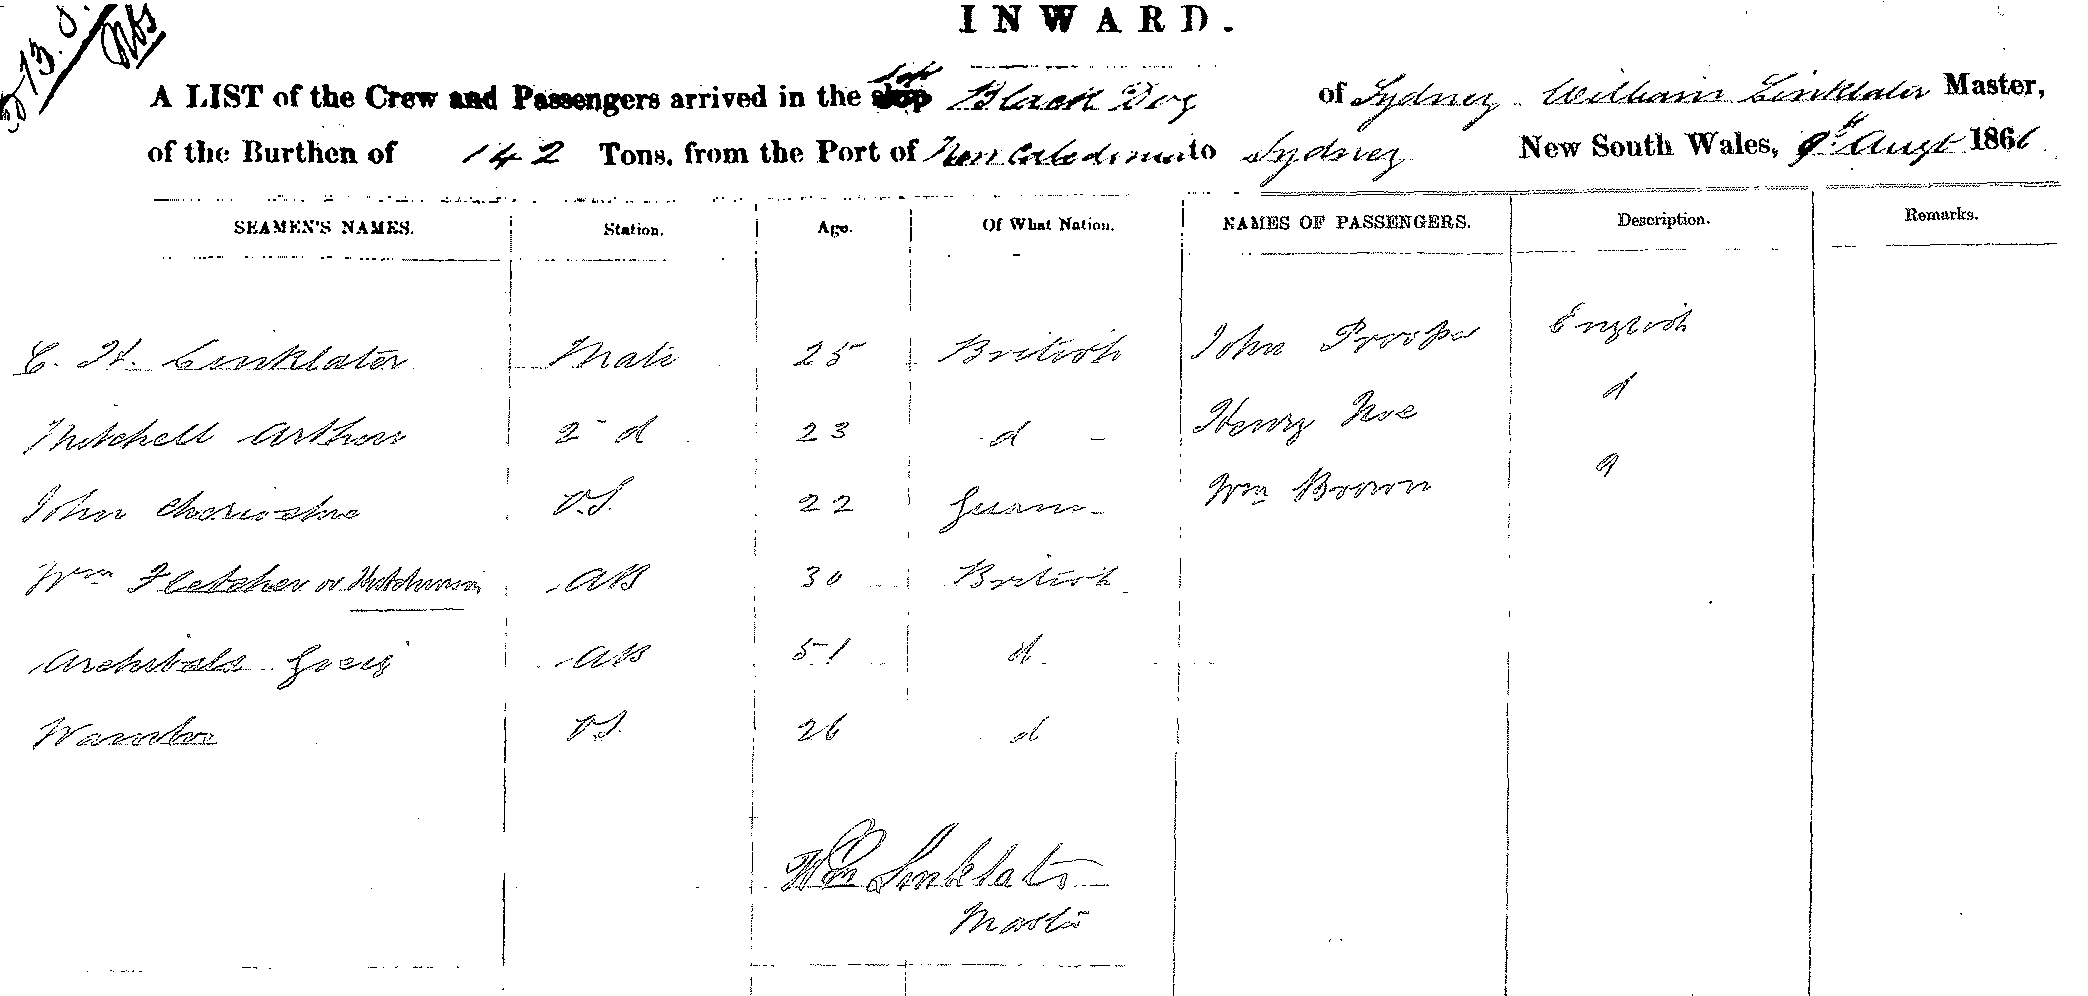 INWARD.
A LIST of the Crew and Passengers arrived in the Black Dog of Sydney William Linklater Master,
of the Burthen of 142 Tons, from the Port of New Caledonia to Sydney New South Wales, 9th Augt 1866
SEAMEN'S NAMES. Station. Age. Of What Nation. NAMES OF PASSENGERS. Description. Remarks.
C. H. Linklater Mate 25 British John English
Mitchell Arthur 2 d 23 d - Henry Noe d
John O.S. 22 Guam Wm Brown d
Wm Fletcher or Hutchinson AB 30 British
Archibald Greig AB 51 d
Wamboo O.S. 26 d
Wm Linklater
Master